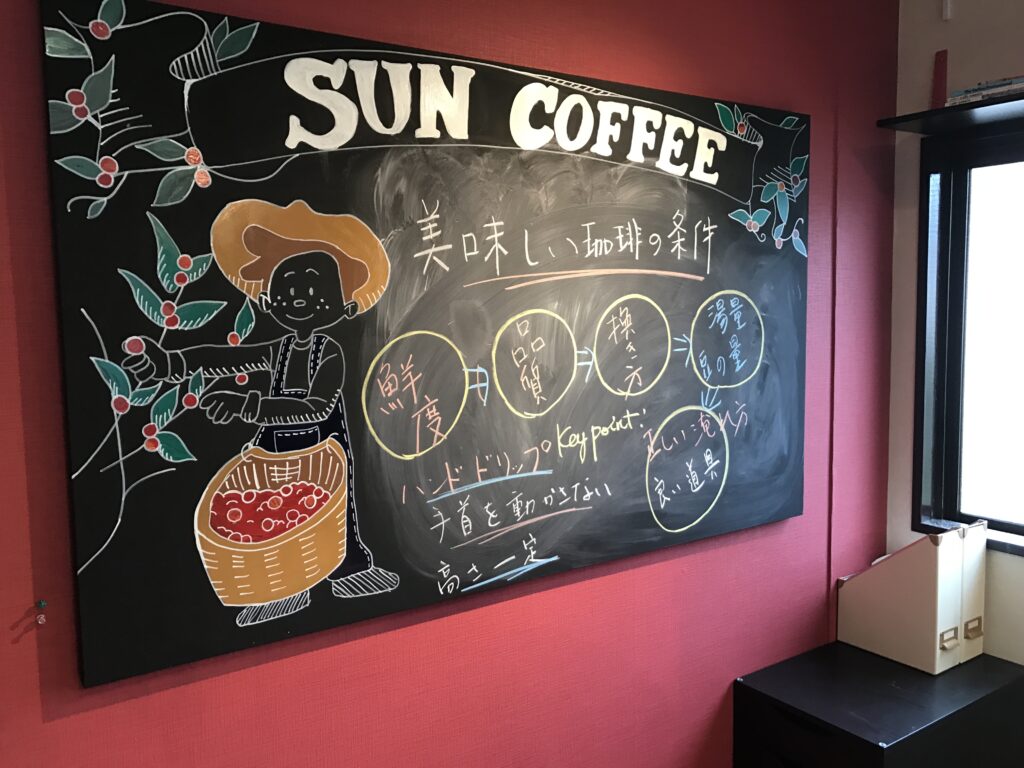 SUN COFFEE
美味しい珈琲の条件
鮮度
品質
挽き方
湯量
豆の量
正しい淹れ方
良い道具
ハンドドリップ Key point:
手首を動かさない
高さ一定